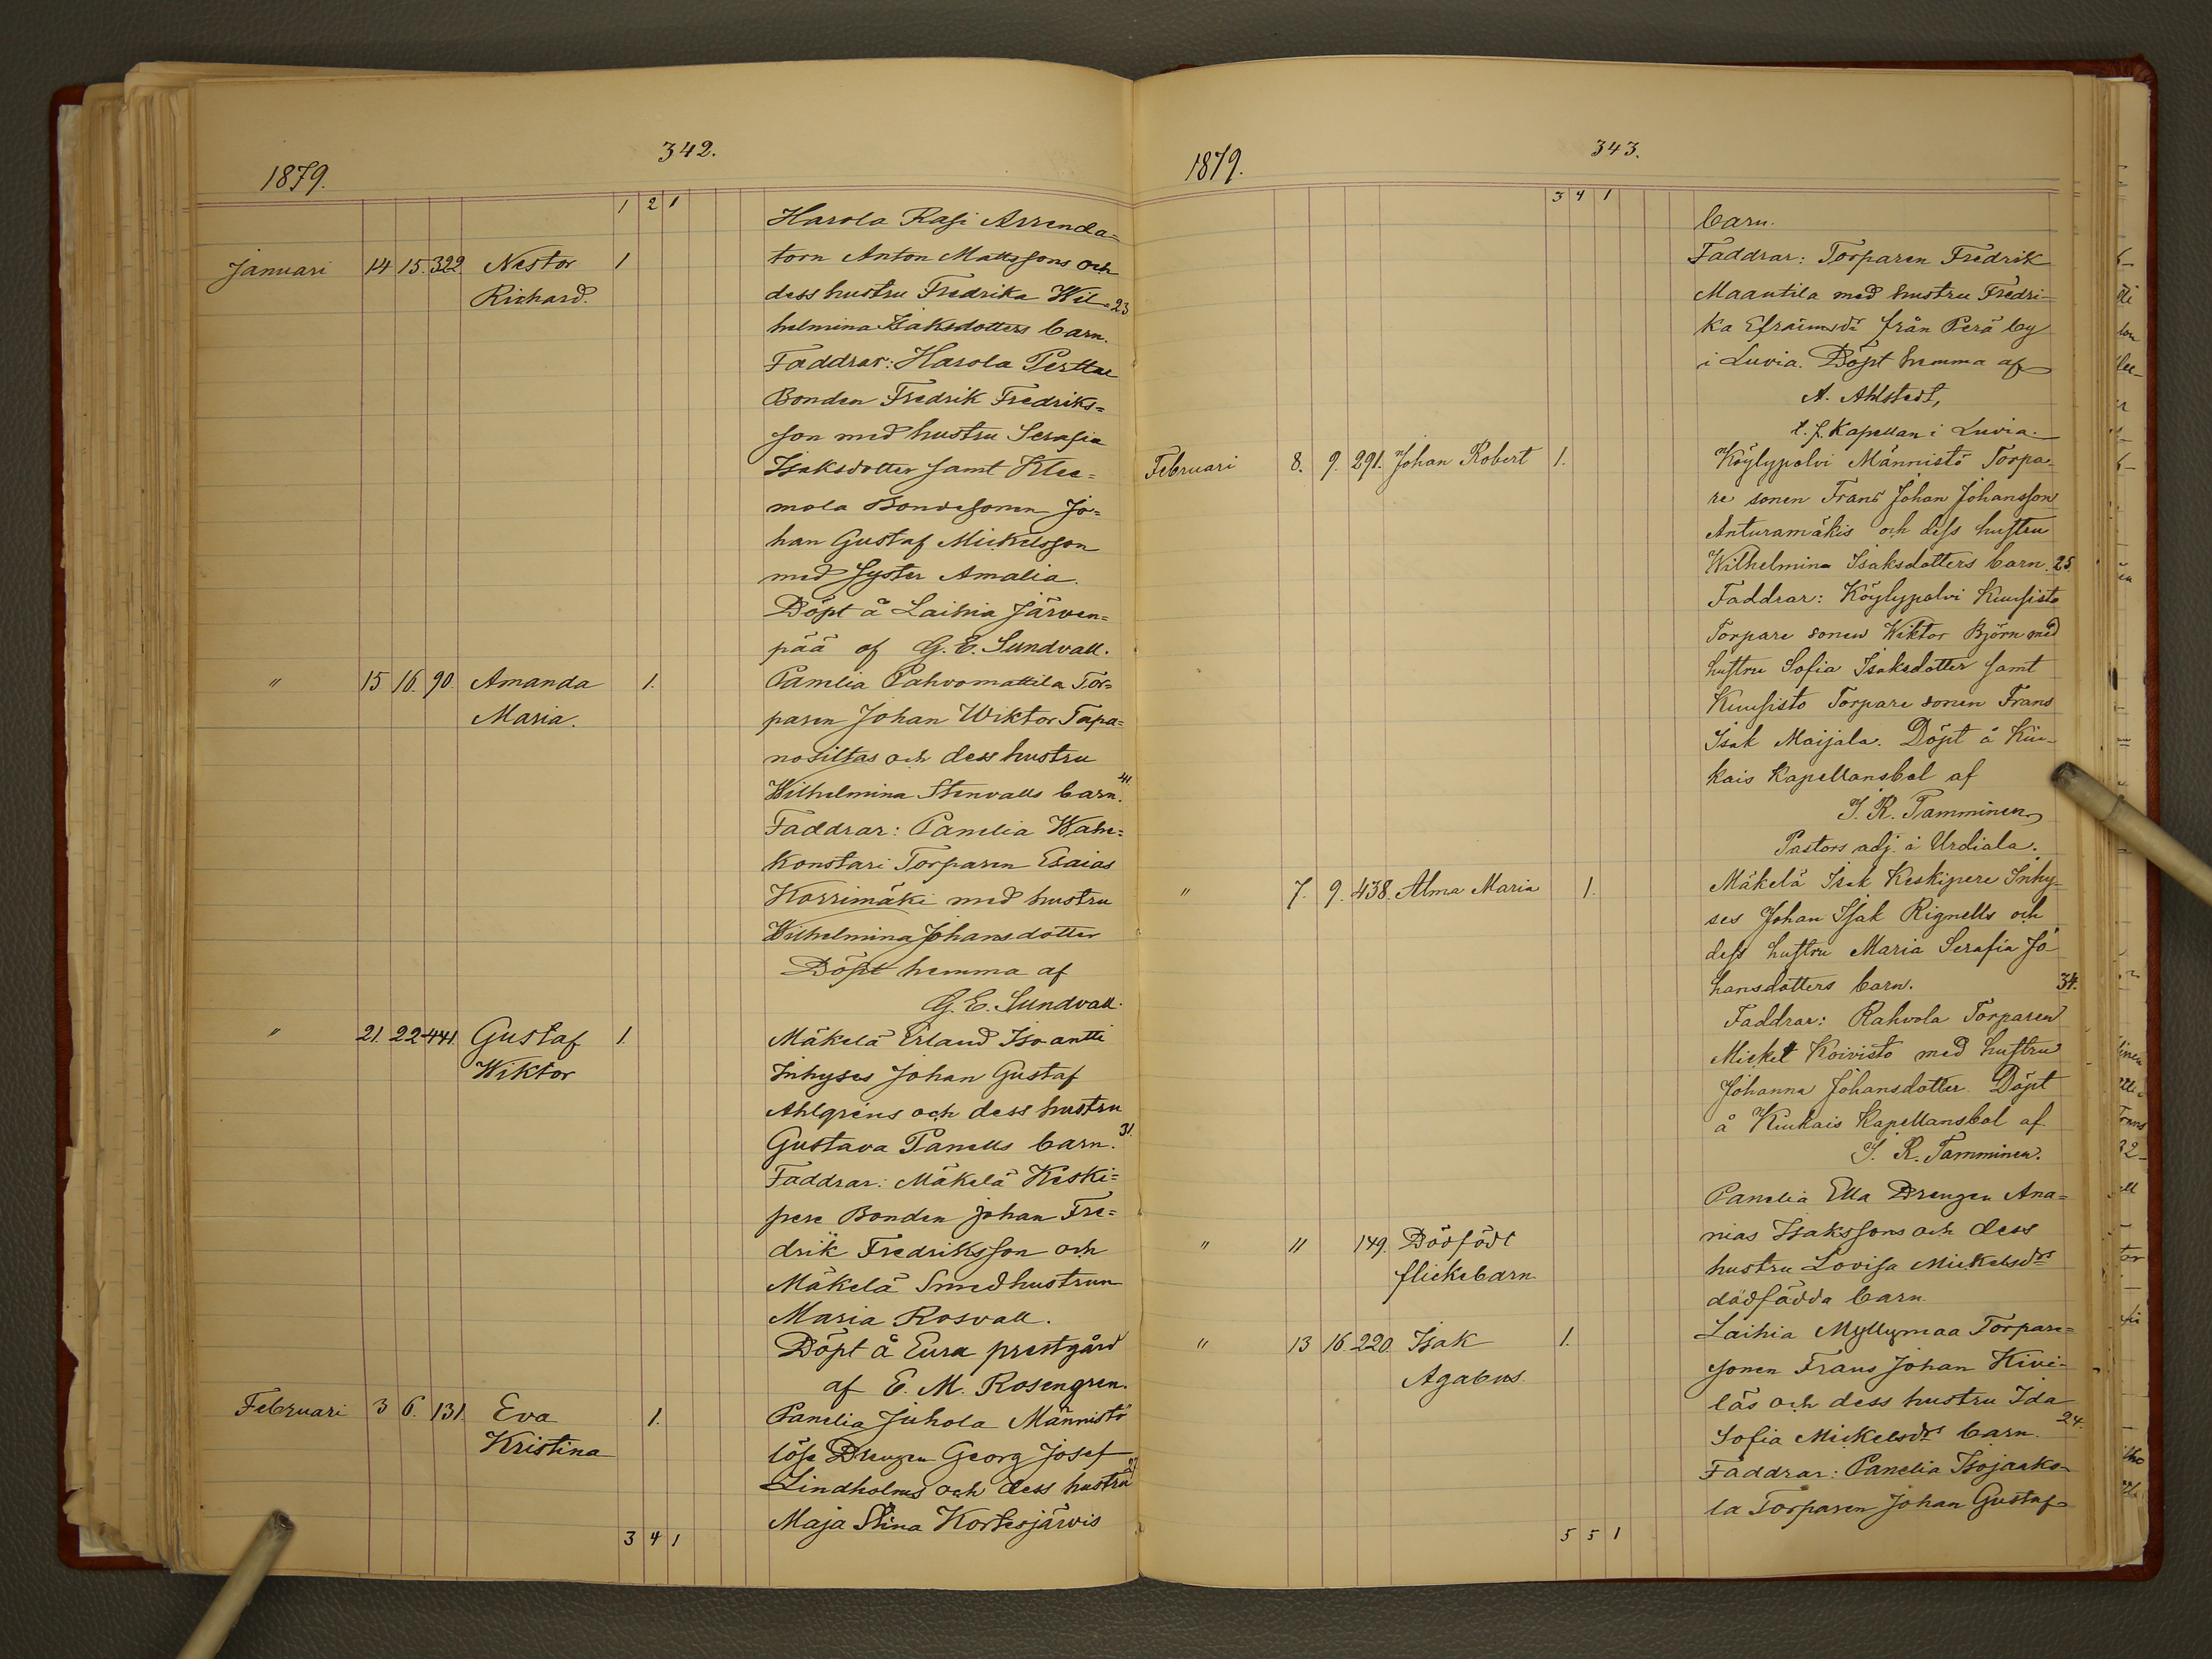 342.
1879.
1 2 1
Harola Rasi Arrenda=
Januari 14 15. 322. Nestor 1 torn Anton Mattssons och
Richard. dess hustru Fredrika Wil- 23
helmina Isaksdotters barn.
Faddrar: Harola Perttu
Bonden Fredrik Fredriks=
son med hustru Serafia
Isaksdotter samt Klee=
mola Bondesonen Jo=
han Gustaf Mickelsson
med syster Amalia.
Döpt å Laihia Järven=
pää af G. E. Sundvall.
" 15 16. 90. Amanda 1. Panelia Pahvomattila Tor=
Maria. paren Johan Wiktor Tapa=
nosiltas och dess hustru
Wilhelmina Stenvalls barn. 41.
Faddrar: Panelia Wahe=
konstari Torparen Esaias
Korrimäki med hustru
Wilhelmina Johansdotter
Döpt hemma af
G. E. Sundvall.
" 21. 22 441. Gustaf 1. Mäkelä Erland Iso-antti
Wiktor Inhyses Johan Gustaf
Ahlgrens och dess hustru
Gustava Panells barn. 31.
Faddrar: Mäkelä Keski=
pere Bonden Johan Fre=
drik Fredriksson och
Mäkelä Smedhustrun
Maria Rosvall.
Döpt å Eura prestgård
af E. M. Rosengren.
Februari 3 6. 131. Eva 1. Panelia Juhola Männistö
Kristina löse Drengen Georg Josef
Lindholms och dess hustru 27
Maja Stina Kortesjärvis
3 4 1
343.
1879.
3 4 1
barn.
Faddrar: Torparen Fredrik
Maantila med hustru Fredri-
ka Efraimsdr från Perä by
i Luvia. Döpt hemma af
A. Ahlstedt,
t. f. Kapellan i Luvia.
Februari 8. 9. 291. Johan Robert 1. Köylypolvi Männistö Torpa-
re sonen Frans Johan Johansson
Anturamäkis och dess hustru
Wilhelmina Isaksdotters barn. 25.
Faddrar: Köylypolvi Kuusisto
Torpare sonen Wiktor Björn med
hustru Sofia Isaksdotter samt
Kuusisto Torpare sonen Frans
Isak Maijala. Döpt å Kiu-
kais Kapellansbol af
J. R. Tamminen,
Pastors adj. i Urdiala.
" 7. 9. 438. Alma Maria 1. Mäkelä Isak Keskipere Inhy-
ses Johan Isak Rignells och
dess hustru Maria Serafia Jo-
hansdotters barn. 34.
Faddrar: Rahvola Torparen
Mickel Koivisto med hustru
Johanna Johansdotter. Döpt
å Kiukais Kapellansbol af
J. R. Tamminen.
Panelia Ella Drengen Ana=
" 11 149. Dödfödt nias Isakssons och dess
flickebarn hustru Lovisa Mickelsdrs
dödfödda barn.
" 13 16. 220. Isak 1. Laihia Myllymaa Torpare=
Agabus. sonen Frans Johan Kivi-
läs och dess hustru Ida
Sofia Mickelsdrs barn. 24.
Faddrar: Panelia Isojaako-
la Torparen Johan Gustaf
5 5 1